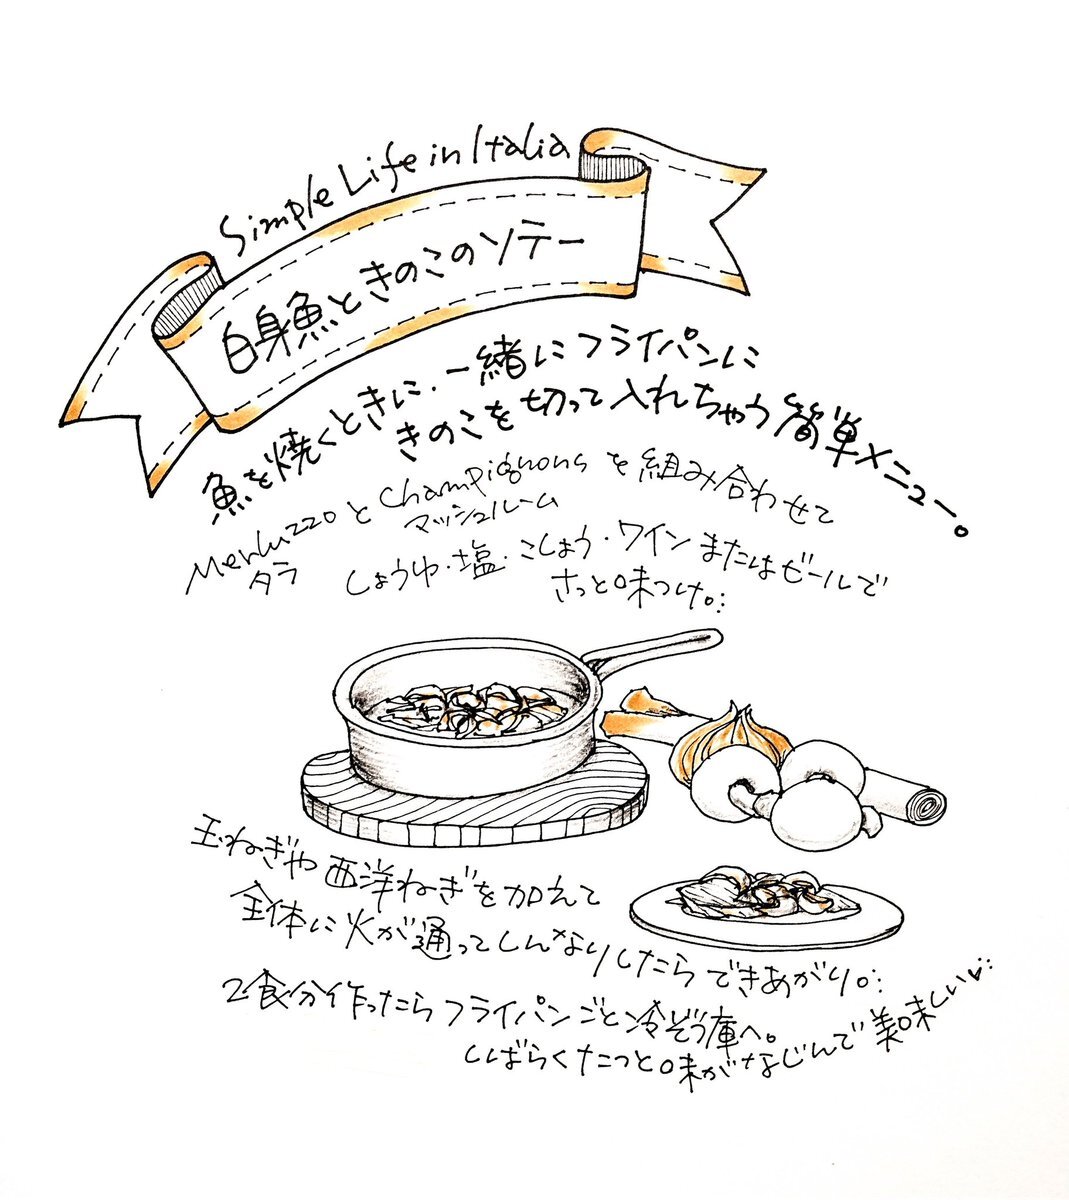 Simple Life in Italia
白身魚ときのこのソテー
魚を焼くときに、一緒にフライパンに
きのこを切って入れちゃう簡単メニュー。
Merluzzoとchampignonsを組み合わせて
タラ マッシュルーム
しょうゆ・塩・こしょう・ワインまたはビールで
さっと味つけ。
玉ねぎや西洋ねぎを加えて
全体に火が通ってしんなりしたらできあがり。
2食分作ったらフライパンごと冷ぞう庫へ。
しばらくたつと味がなじんで美味しい♥